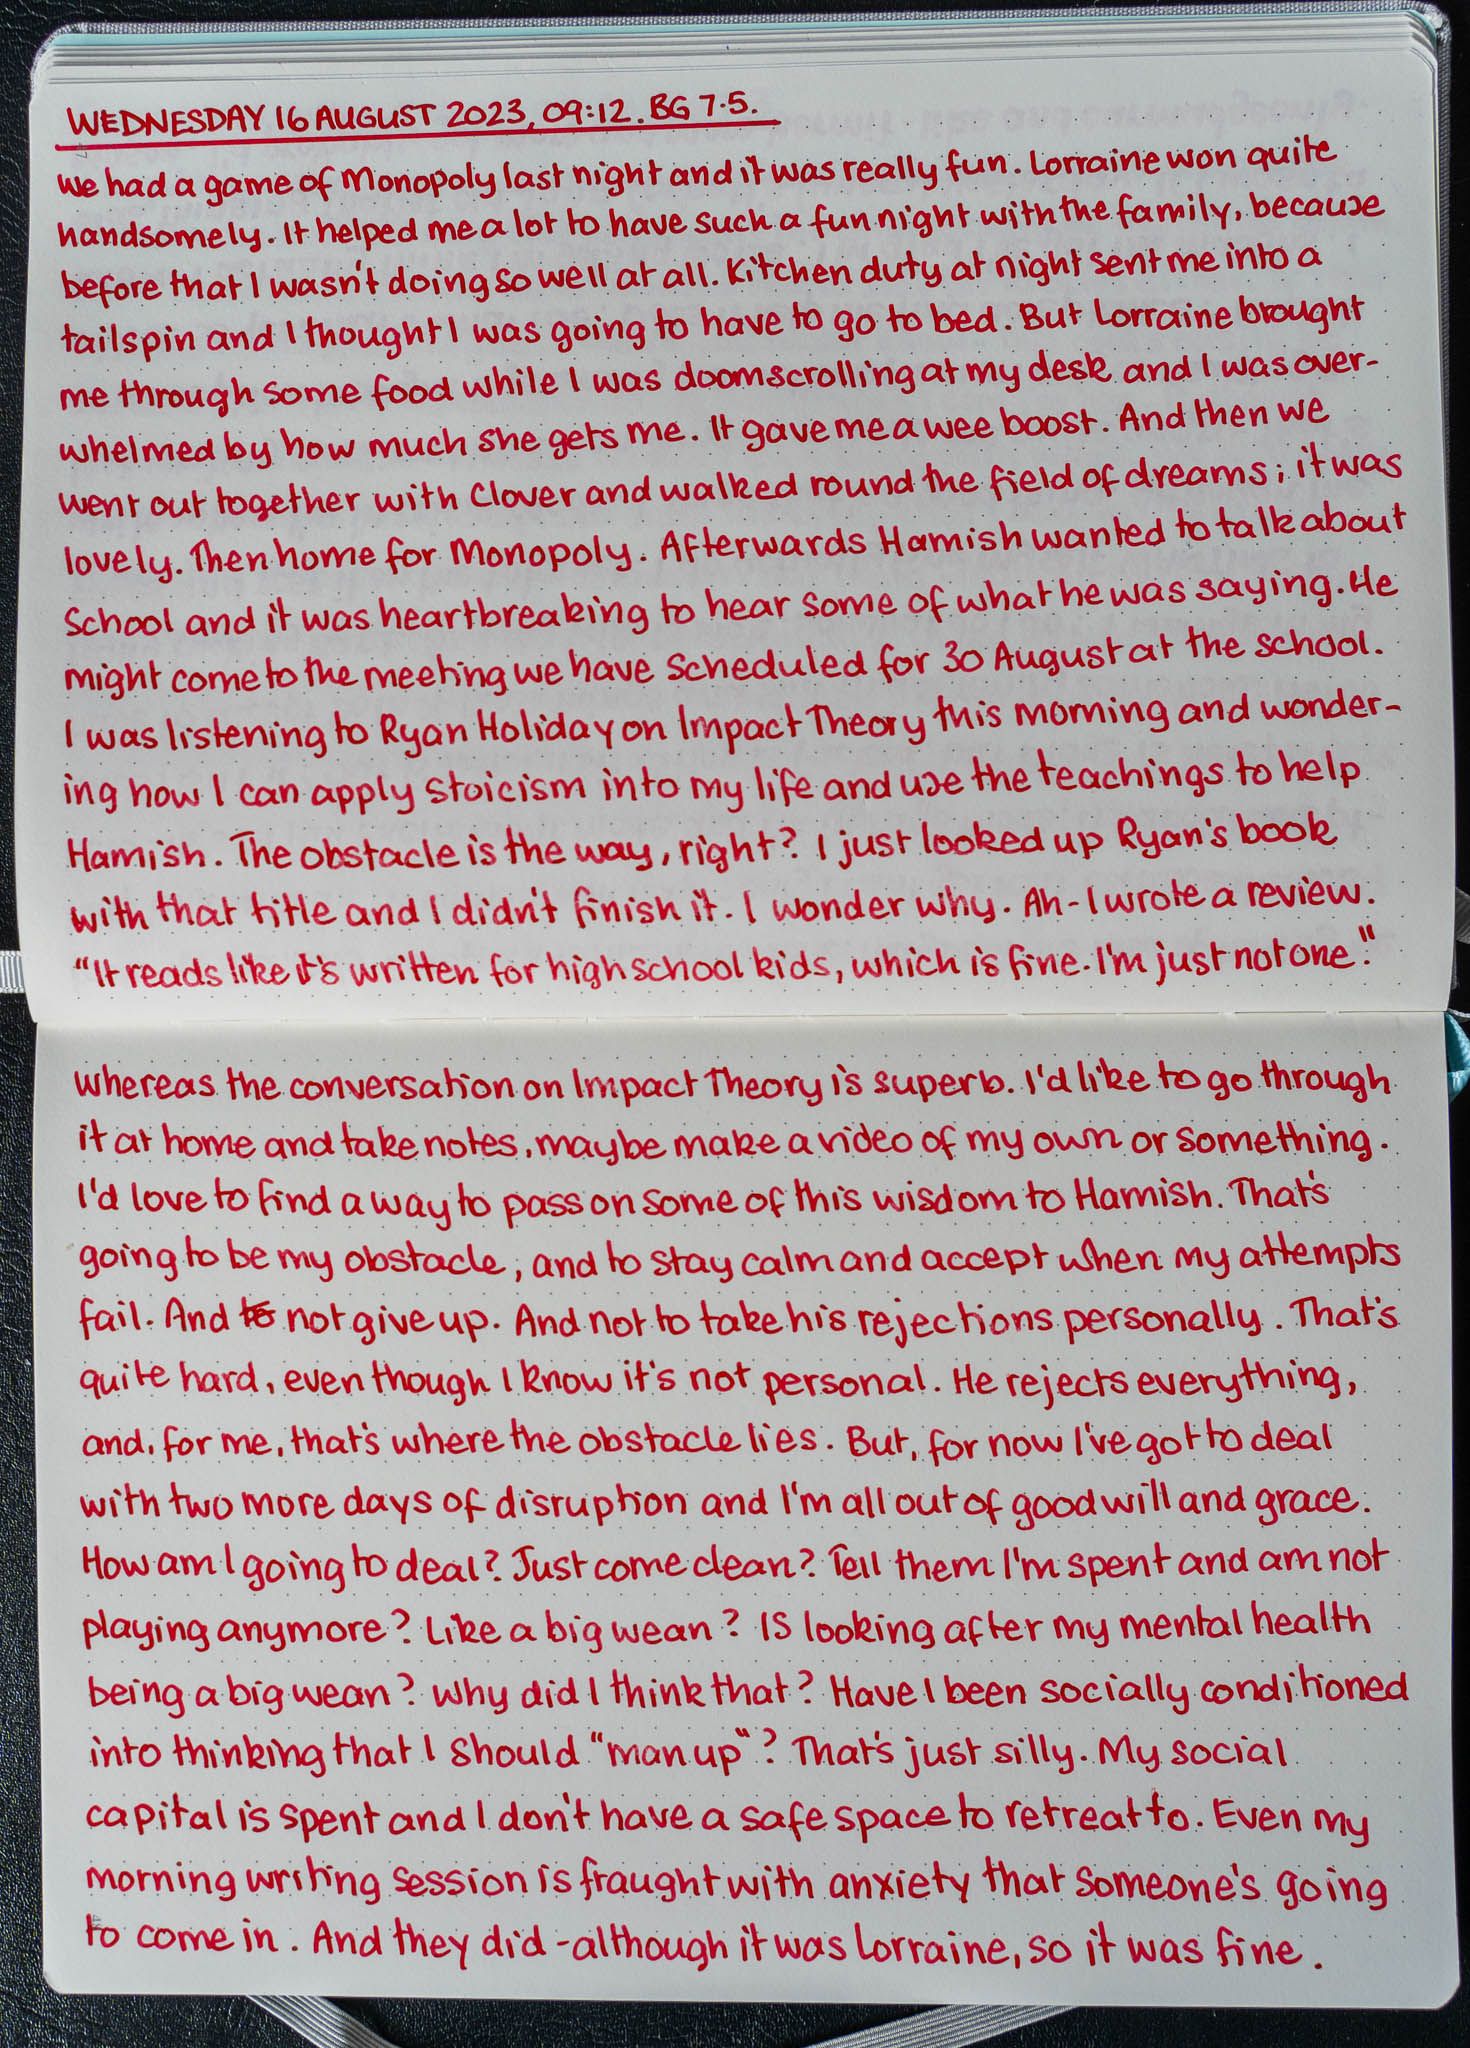 WEDNESDAY 16 AUGUST 2023, 09:12. BG 7.5.
We had a game of Monopoly last night and it was really fun. Lorraine won quite
handsomely. It helped me a lot to have such a fun night with the family, because
before that I wasn't doing so well at all. Kitchen duty at night sent me into a
tailspin and I thought I was going to have to go to bed. But Lorraine brought
me through some food while I was doomscrolling at my desk and I was over-
whelmed by how much she gets me. It gave me a wee boost. And then we
went out together with Clover and walked round the field of dreams; it was
lovely. Then home for Monopoly. Afterwards Hamish wanted to talk about
School and it was heartbreaking to hear some of what he was saying. He
might come to the meeting we have scheduled for 30 August at the school.
I was listening to Ryan Holiday on Impact Theory this morning and wonder-
ing how I can apply stoicism into my life and use the teachings to help
Hamish. The obstacle is the way, right? I just looked up Ryan's book
with that title and I didn't finish it. I wonder why. Ah - I wrote a review.
"It reads like it's written for high school kids, which is fine. I'm just not one."
Whereas the conversation on Impact Theory is superb. I'd like to go through
it at home and take notes, maybe make a video of my own or something.
I'd love to find a way to pass on some of this wisdom to Hamish. That's
going to be my obstacle; and to stay calm and accept when my attempts
fail. And to not give up. And not to take his rejections personally. That's
quite hard, even though I know it's not personal. He rejects everything,
and, for me, that's where the obstacle lies. But, for now I've got to deal
with two more days of disruption and I'm all out of goodwill and grace.
How am I going to deal? Just come clean? Tell them I'm spent and am not
playing anymore? Like a big wean? IS looking after my mental health
being a big wean? Why did I think that? Have I been socially conditioned
into thinking that I should "man up"? That's just silly. My social
capital is spent and I don't have a safe space to retreat to. Even my
morning writing session is fraught with anxiety that someone's going
to come in. And they did - although it was Lorraine, so it was fine.